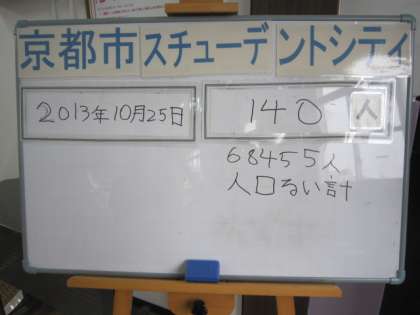 京都市スチューデントシティ
2013年10月25日
140人
68455人
人口るい計